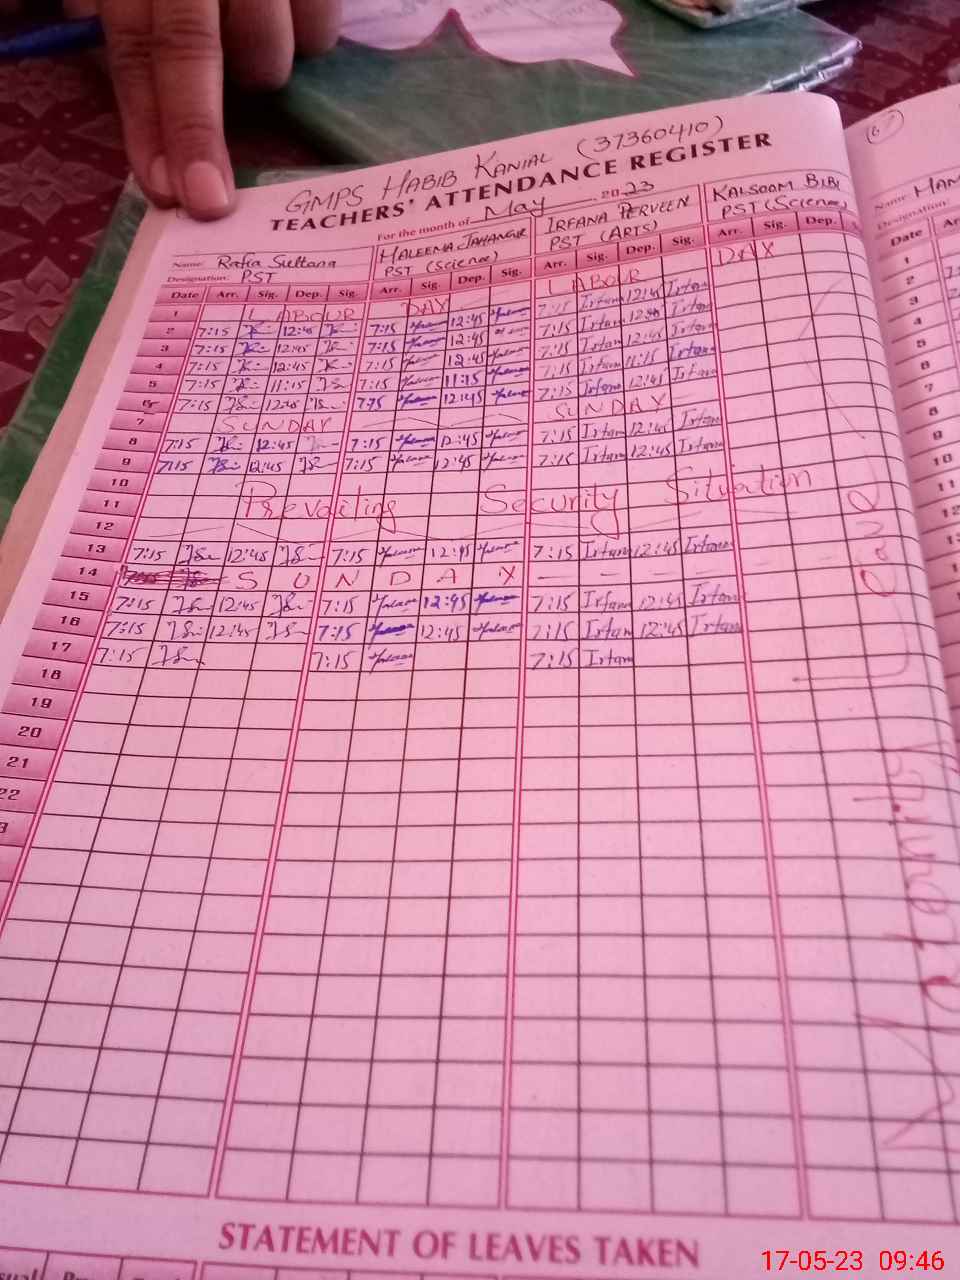 GMPS HABIB KANIAL (37360410)
TEACHERS' ATTENDANCE REGISTER
For the month of May 2023
Name: Rafia Sultana MALEENA JAHANGIR IRFANA PERVEEN KALSOOM BIBI
Designation: PST PST (Science) PST (ARTS) PST (Science)
Date Arr. Sig. Dep. Sig. Arr. Sig. Dep. Sig. Arr. Sig. Dep. Sig. Arr. Sig. Dep.
1 LABOUR DAY LABOUR DAY
2 7:15 12:45 7:15 12:45 7:15 Irfana 12:45 Irfana
3 7:15 12:45 7:15 12:45 7:15 Irfana Irfana
4 7:15 12:45 7:15 12:45 7:15 Irfana 12:45 Irfana
5 7:15 11:15 7:15 11:15 7:15 Irfana 11:15 Irfana
6 7:15 12:45 7:15 12:45 7:15 Irfana 12:45 Irfana
7 SUNDAY SUNDAY
8 7:15 12:45 7:15 12:45 7:15 Irfana 12:45 Irfana
9 7:15 12:45 7:15 12:45 7:15 Irfana 12:45 Irfana
10
11 Prevailing Security Situation
12
13 7:15 12:45 7:15 12:45 7:15 Irfana 12:45 Irfana
14 SUNDAY
15 7:15 12:45 7:15 12:45 7:15 Irfana 12:45 Irfana
16 7:15 12:45 7:15 12:45 7:15 Irfana 12:45 Irfana
17 7:15 7:15 7:15 Irfana
18
19
20
21
22
Maternity Leave
STATEMENT OF LEAVES TAKEN
67
Name
Designation:
Date
1
2
3
4
5
6
7
8
9
10
11
12
17-05-23 09:46